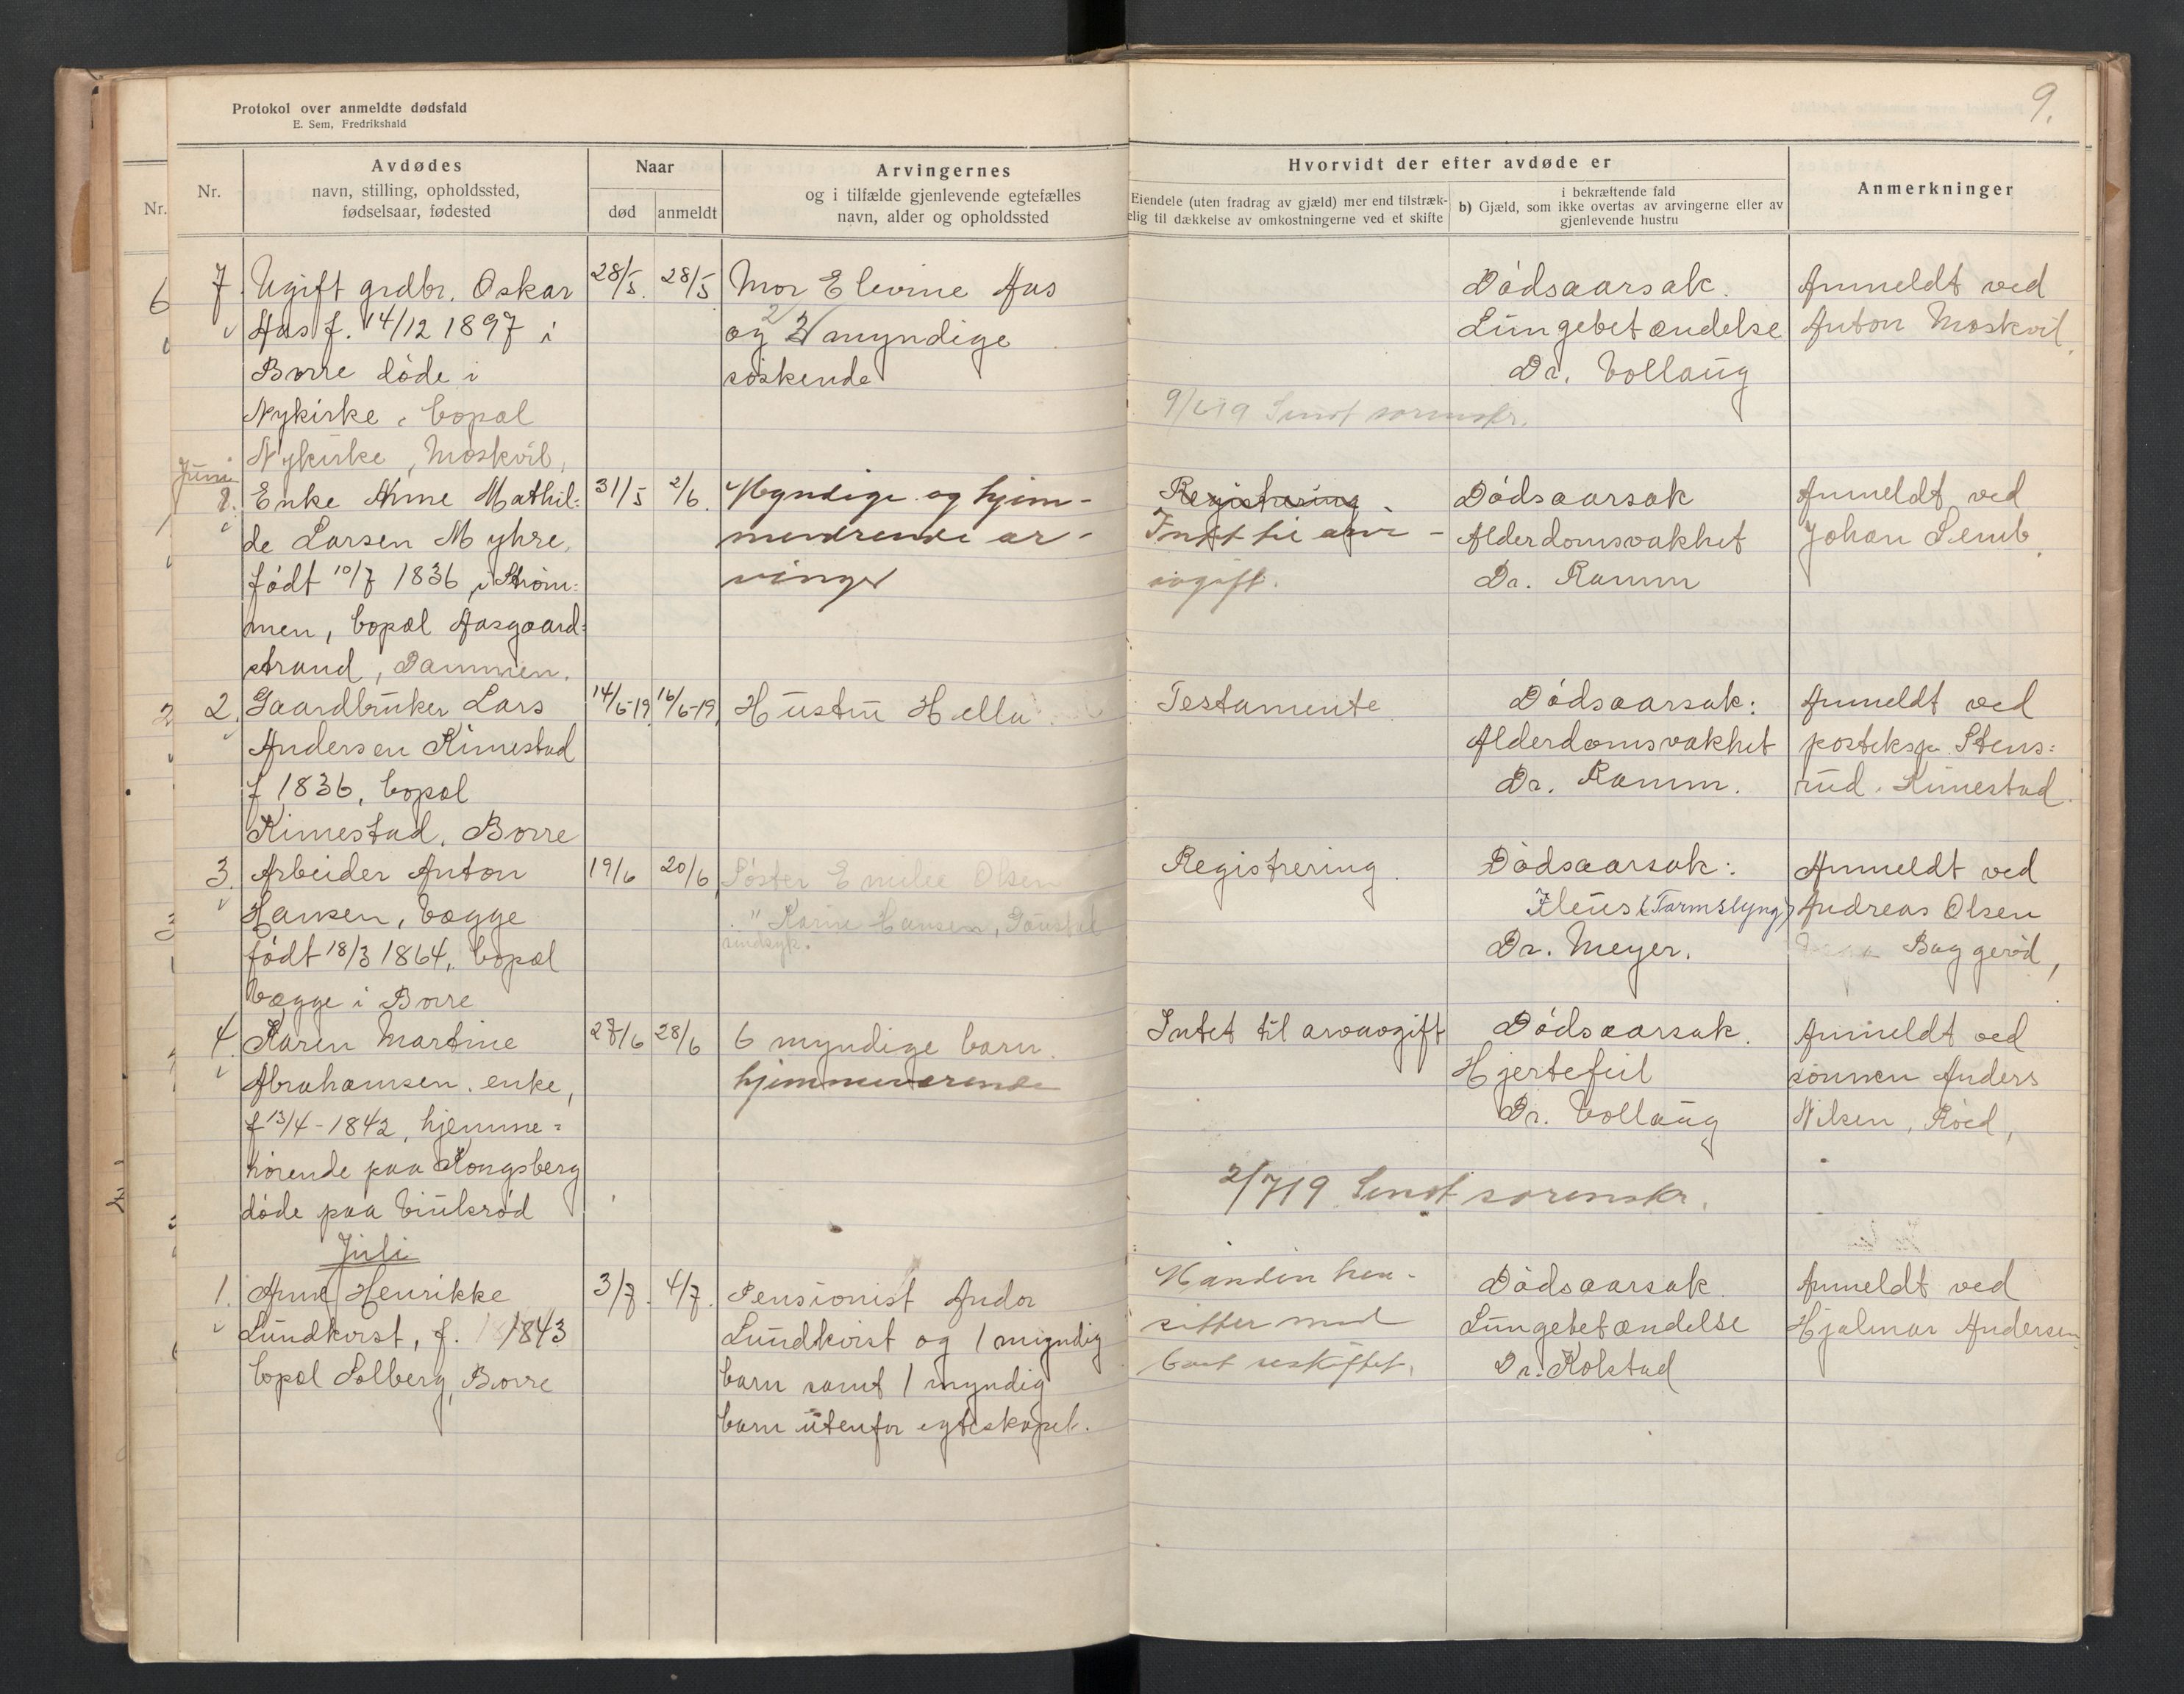 Protokol over anmeldte dødsfald
E. Sem, Fredrikshald
9.
Nr.
Nr.
Avdødes
navn, stilling, opholdssted,
fødselsaar, fødested
Naar
død
anmeldt
Arvingernes
og i tilfælde gjenlevende egtefælles
navn, alder og opholdssted
Hvorvidt der efter avdøde er
Eiendele (uten fradrag av gjæld) mer end tilstræk-
elig til dækkelse av omkostningerne ved et skifte
i bekræftende fald
b) Gjæld, som ikke overtas av arvingerne eller av
gjenlevende hustru
Anmerkninger
7 Ugift grdbr. Oskar
Aas f. 14/12 1897 i
Borre døde i
Nykirke, bopæl
Nykirke, Moskvil,
28/5. 28/5
Mor Elevine Aas
og 2 myndige
søskende
9/6 19 Sendt sorenskr.
Dødsaarsak.
Lungebetændelse
Dr. Vollaug
Anmeldt ved
Anton Moskvil.
Juni
1. Enke Anne Mathil-
de Larsen Myhre,
født 10/7 1836 i Strøm-
men, bopæl Aasgaard-
strand, Dammen.
31/5 2/6.
Myndige og hjem-
mendrende ar-
vinger
Registrering
Intet til arv-
avgift.
Dødsaarsak
Alderdomsvakhet
Dr. Ramm
Anmeldt ved
Johan Semb.
2. Gaardbruker Lars
Andersen Kimestad
f 1836, bopæl
Kimestad, Borre
14/6-19 16/6-19
Hustru Hella
Testamente
Dødsaarsak:
Alderdomsvakhet
Dr. Ramm.
Anmeldt ved
posteksp. Stens-
rud. Kimestad.
3. Arbeider Anton
Hansen, Bagge
født 18/3 1864, bopæl
Bagge i Borre
19/6 20/6
Søster Emilie Olsen
" Karin Hansen,
sindsyk.
Registrering.
Dødsaarsak:
Ileus (Tarmslyng)
Dr. Meyer.
Anmeldt ved
Andreas Olsen
Baggerød,
4. Karen Martine
Abrahamsen, enke,
f 13/4-1842, hjemme-
hørende paa Kongsberg
døde paa Viulsrød
27/6 28/6
6 myndige barn.
hjemmeværende
Intet til arveavgift
Dødsaarsak.
Hjertefeil
Dr. Vollaug
Anmeldt ved
sønnen Anders
Nilsen, Røed,
2/7 19 Sendt sorenskr.
Juli
1. Anne Henrikke
Lundkvist, f. 1843
bopæl Solberg, Borre
3/7. 4/7.
Pensionist Andor
Lundkvist og 1 myndig
barn samt 1 myndig
barn utenfor egteskapet.
Manden hen-
sitter med
boet uskiftet.
Dødsaarsak.
Lungebetændelse
Dr. Kolstad
Anmeldt ved
Hjalmar Andersen